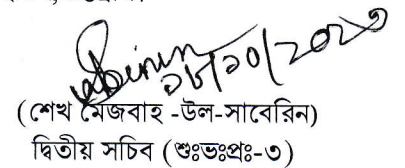 ১৮/১০/২০২৩
(শেখ মেজবাহ -উল-সাবেরিন)
দ্বিতীয় সচিব (শুঃভঃপ্রঃ-৩)